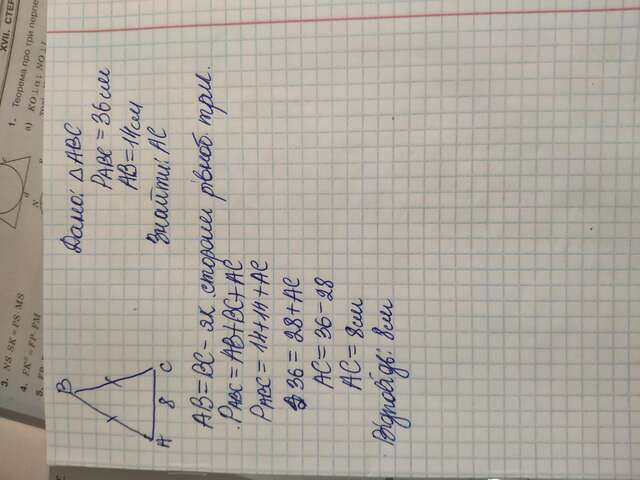 XVII. СТЕР
1. Теорема про три перпе
а) KO⊥α; NO⊥
N
3. NS·SK=PS·MS
4. FK²=FP·FM
5.
B
A
8
C
Дано: △ABC
P ABC = 36 см
AB=14см
Знайти: AC
AB=BC- як сторони рівноб. трик.
P ABC = AB+BC+AC
P ABC = 14+14+AC
36 = 28+AC
AC=36-28
AC=8см
Відповідь: 8см